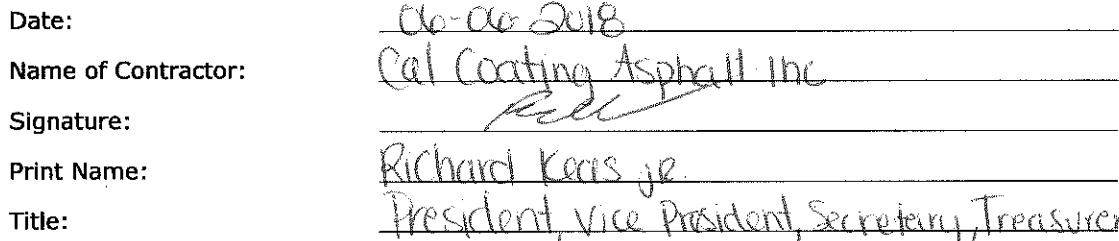 Date: 06-06-2018
Name of Contractor: Cal Coating Asphalt Inc
Signature:
Print Name: Richard Keas jr.
Title: President, Vice President, Secretary, Treasurer